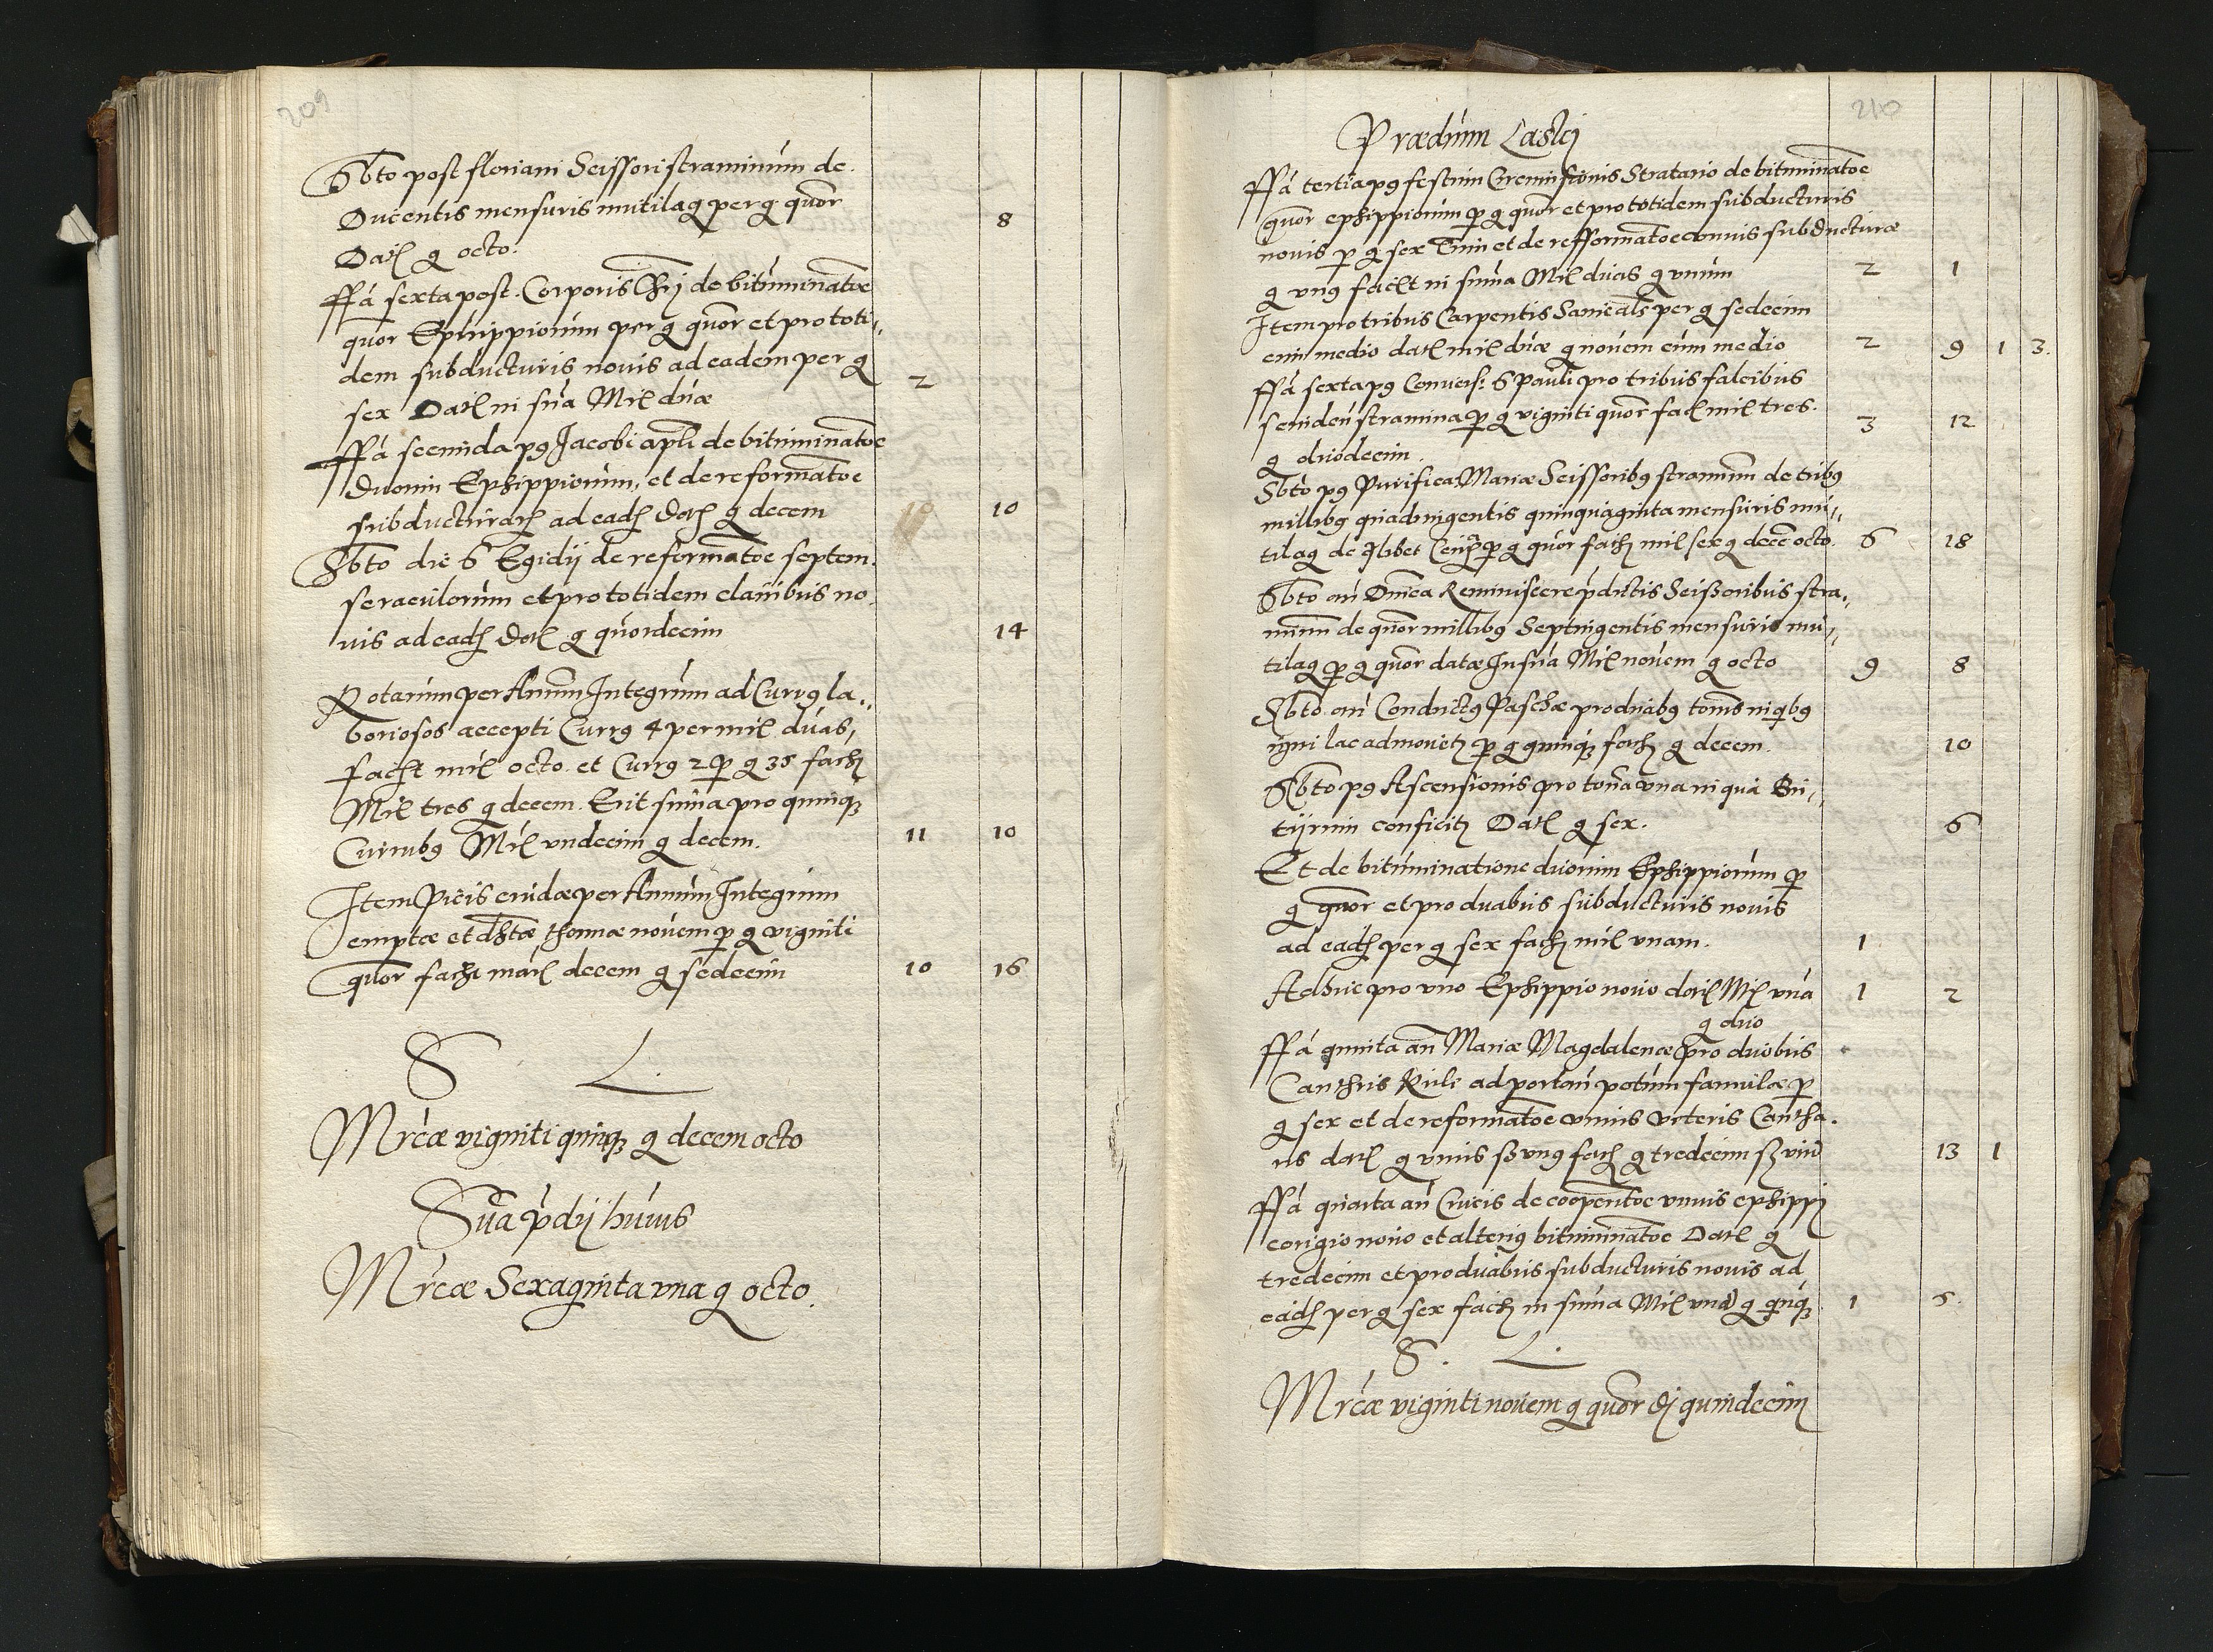 209
Sbto post floriani Scissori straminum de
Ducentis mensuris mutilaq per gr quor
Datl gr octo. 8
ffa sexta post. Corporis Chri de bituminatoe
quor Ephippiorum per gr quor et pro toti-
dem subducturis novis ad eadem per gr
sex Datl in sua Mrl duæ 2
ffa secunda pg Jacobi apli de bituminatoe
Duorum Ephippiorum, et de reformatoe
subducturarh ad eadh Datl gr decem 10
Sbto die S Egidij de reformatoe septem
seraculorum et pro totidem clavibus no-
vis ad eadh Datl gr quordecim 14
Rotarum per Annum Integrum ad Currg la-
boriosos accepti Currg 4 per mrl duas,
facht mrl octo. et Currg 2 p gr 35 fach
Mrl tres gr decem. Erit suma pro quinqz
Curribg Mrl undecim gr decem. 11 10
Item Picis crudæ per Annum Integrum
emptæ et dstæ thonnæ novem p gr viginti
quor facht marl decem gr sedecim 10 16
S L.
Mrcæ viginti quinqz gr decem octo
Sua pdij huius
Mrcæ Sexaginta una gr octo.
210
Prædium Laskj
ffa tertia pg festum Circumcisionis Stratario de bituminatoe
quor ephippiorum p gr quor et pro totidem subducturis
novis p gr sex Tum et de refformatoe unius subducturæ
gr ung facilt in suma Mrl duas gr unum 2 1
Item pro tribus Carpentis per gr sedecim
cum medio datl mrl duæ gr novem cum medio 2 9 1 3.
ffa sexta pg Convers: S Pauli pro tribus falcibus
scindeu stramina p gr viginti quor facl mrl tres.
gr duodecim. 3 12
Sbto pg Purifica Mariæ Scissoribg straminum de tribg
millibg quadringentis quinquaginta mensuris mu-
tilaq de qlibet p gr quor fach mrl sex gr decem octo. 6 18
Sbto an Dnica Reminiscere pdictis Scissoribus stra-
minum de quor millibg Septingentis mensuris mu-
tilaq p gr quor datæ In sua Mrl novem gr octo 9 8
Sbto an Conductg Paschæ pro duabg tonis in qbg
igni lac admovetz p gr quinqz fach gr decem. 10
Sbto pg Ascensionis pro tona una in qua Bu-
tijrum conficitz Datl gr sex. 6
Et de bituminatione duorum Ephippiorum p
gr quor et pro duabus subducturis novis
ad eadh per gr sex fach mrl unam. 1
Adhuc pro uno Ephippio novo datl Mrl una 1 2
gr duo
ffa quinta an Mariæ Magdalenæ pro duobus
Canthris Rule ad portan potum famulæ p
gr sex et de reformatoe unius veteris Cantha-
ris datl gr unius ss ung fach gr tredecim ss unu 13 1
ffa quarta an Crucis de coopertoe unius ephippj
corigio novo et alterig bituminatoe Datl gr
tredecim et pro duabus subducturis novis ad
eadh per gr sex fach in suma Mrl una gr quqz 1 5.
S. L.
Mrcæ viginti novem gr quor dj quindecim